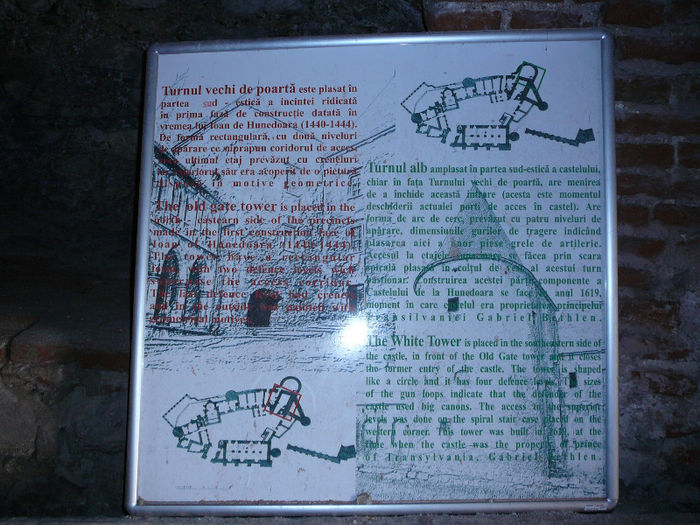 Turnul vechi de poartă este plasat în
partea sud - estică a incintei ridicată
în prima fază de construcție datată în
vremea lui Ioan de Hunedoara (1440-1444).
De formă rectangulară, cu două niveluri
de apărare ce suprapun coridorul de acces,
ultimul etaj prevăzut cu creneluri
său era acoperit de o pictură
în motive geometrice.
The old gate tower is placed in the
eastearn side of the precincts
made in the first construction faze of
Ioan of Hunedoara (1440-1444).
The tower have a rectangular
with two defence levels
the access corridor.
defence
Turnul alb amplasat în partea sud-estică a castelului,
chiar în fața Turnului vechi de poartă, are menirea
de a închide această intrare (acesta este momentul
deschiderii actualei porți de acces în castel). Are
formă de arc de cerc, prevăzut cu patru niveluri de
apărare, dimensiunile gurilor de tragere indicând
plasarea aici a unor piese grele de artilerie.
Accesul la etajele făcea prin scara
spirală plasată în colțul de al acestui turn
bastionar. Construirea acestei părți componente a
Castelului de la Hunedoara se face anul 1619,
moment în care castelul era proprietatea principelui
Transilvaniei Gabriel Bethlen.
The White Tower is placed in the southeastern side of
the castle, in front of the Old Gate tower and it closes
the former entry of the castle. The tower is shaped
like a circle and it has four defence levels. The sizes
of the gun loops indicate that the defenders of the
castle used big canons. The access at the superior
levels was done on the spiral stair case placed on the
western corner. This tower was built in at the
time when the castle was the property of prince
of Transylvania, Gabriel Bethlen.